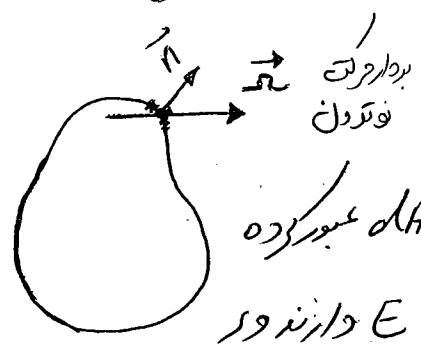 n̂
Ω⃗ بردار حرکت
نوترون
dA عبور کرده
E دارند و در